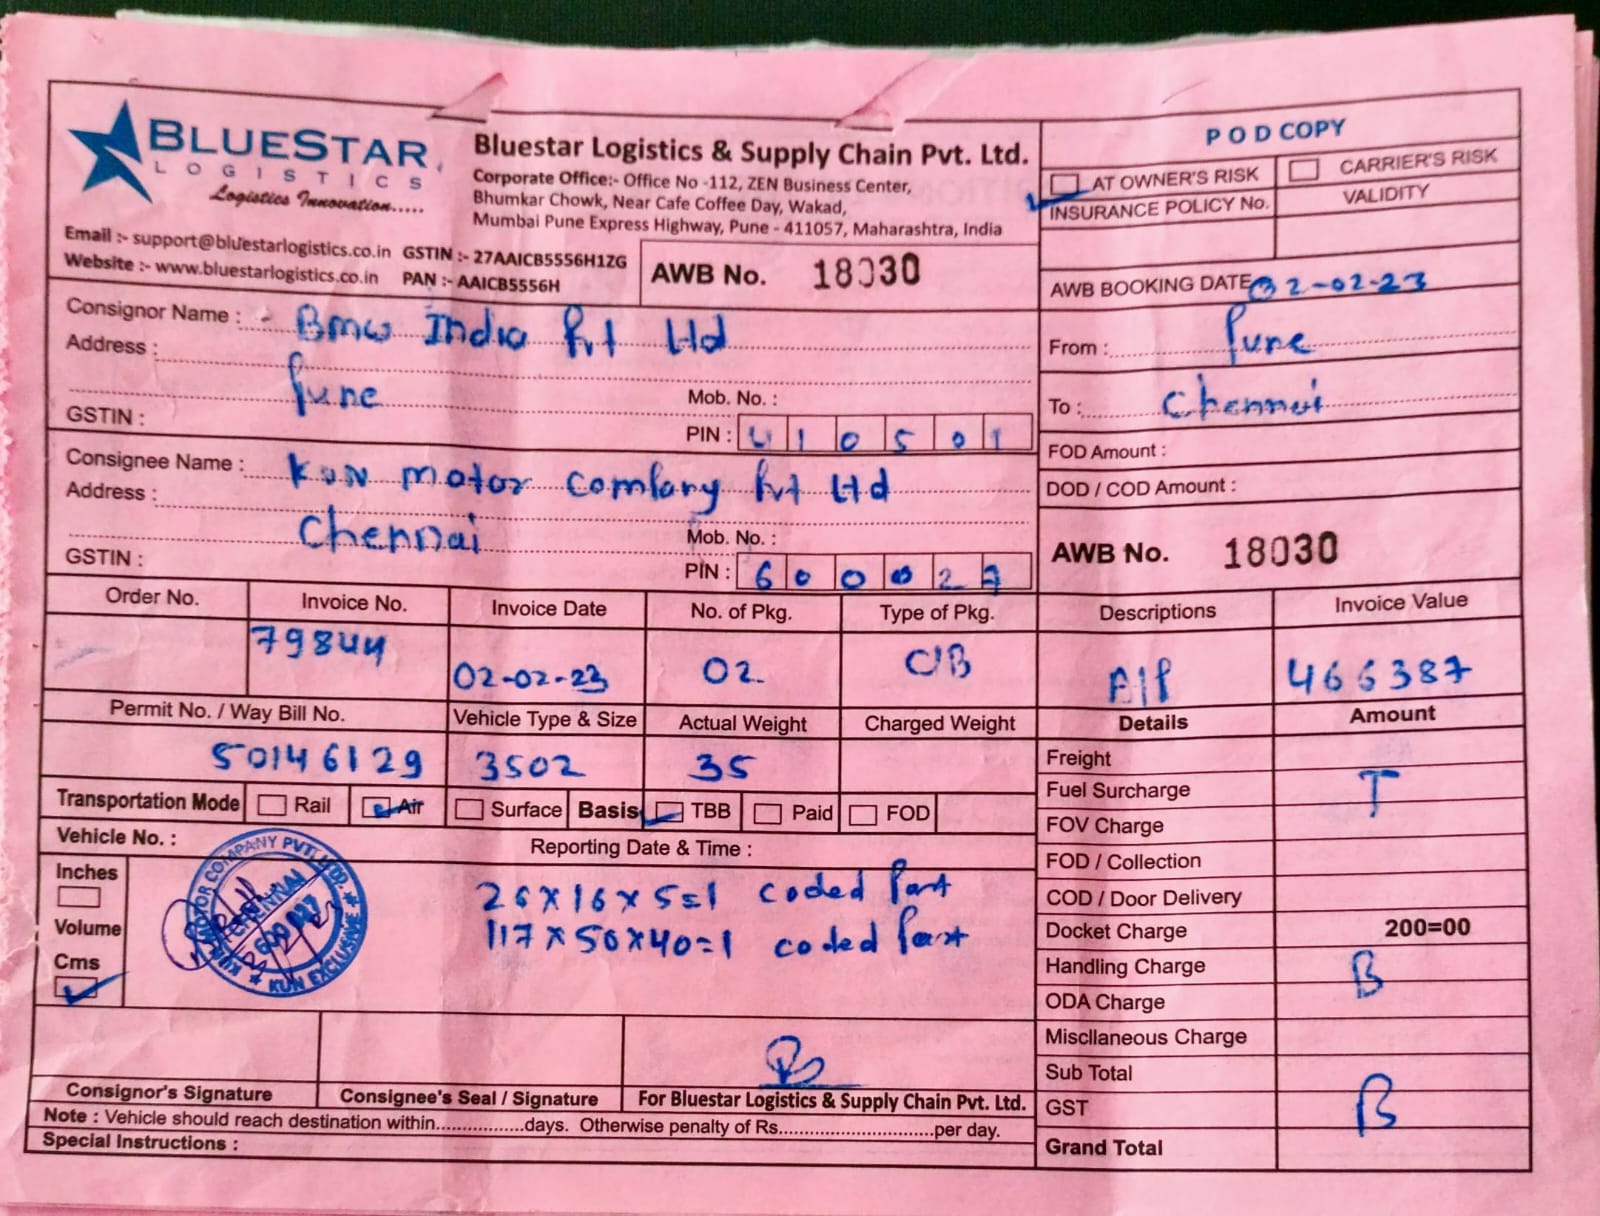 BLUESTAR
LOGISTICS
Logistics Innovation.....
Bluestar Logistics & Supply Chain Pvt. Ltd.
Corporate Office:- Office No -112, ZEN Business Center,
Bhumkar Chowk, Near Cafe Coffee Day, Wakad,
Mumbai Pune Express Highway, Pune - 411057, Maharashtra, India
P O D COPY
AT OWNER'S RISK CARRIER'S RISK
INSURANCE POLICY No. VALIDITY
Email :- support@bluestarlogistics.co.in GSTIN :- 27AAICB5556H1ZG
Website :- www.bluestarlogistics.co.in PAN :- AAICB5556H
AWB No. 18030
AWB BOOKING DATE 02-02-23
Consignor Name : BMW India Pvt Ltd
Address :
Pune
Mob. No. :
GSTIN :
PIN : 410501
From : Pune
To : Chennai
FOD Amount :
DOD / COD Amount :
Consignee Name : KUN motor Company Pvt Ltd
Address :
Chennai
Mob. No. :
GSTIN :
PIN : 600027
AWB No. 18030
Order No. Invoice No. Invoice Date No. of Pkg. Type of Pkg. Descriptions Invoice Value
79844 02-02-23 02 C/B A/P 466387
Permit No. / Way Bill No. Vehicle Type & Size Actual Weight Charged Weight Details Amount
50146129 3502 35
Transportation Mode Rail Air Surface Basis TBB Paid FOD
Vehicle No. : Reporting Date & Time :
Inches
Volume
Cms
26x16x5=1 coded Part
117x50x40=1 coded Part
KUN MOTOR COMPANY PVT. LTD.
CHENNAI
KUN EXCLUSIVE
Freight
Fuel Surcharge T
FOV Charge
FOD / Collection
COD / Door Delivery
Docket Charge 200=00
Handling Charge B
ODA Charge
Miscllaneous Charge
Sub Total
GST B
Grand Total
Consignor's Signature Consignee's Seal / Signature For Bluestar Logistics & Supply Chain Pvt. Ltd.
Note : Vehicle should reach destination within.................days. Otherwise penalty of Rs..............................per day.
Special Instructions :